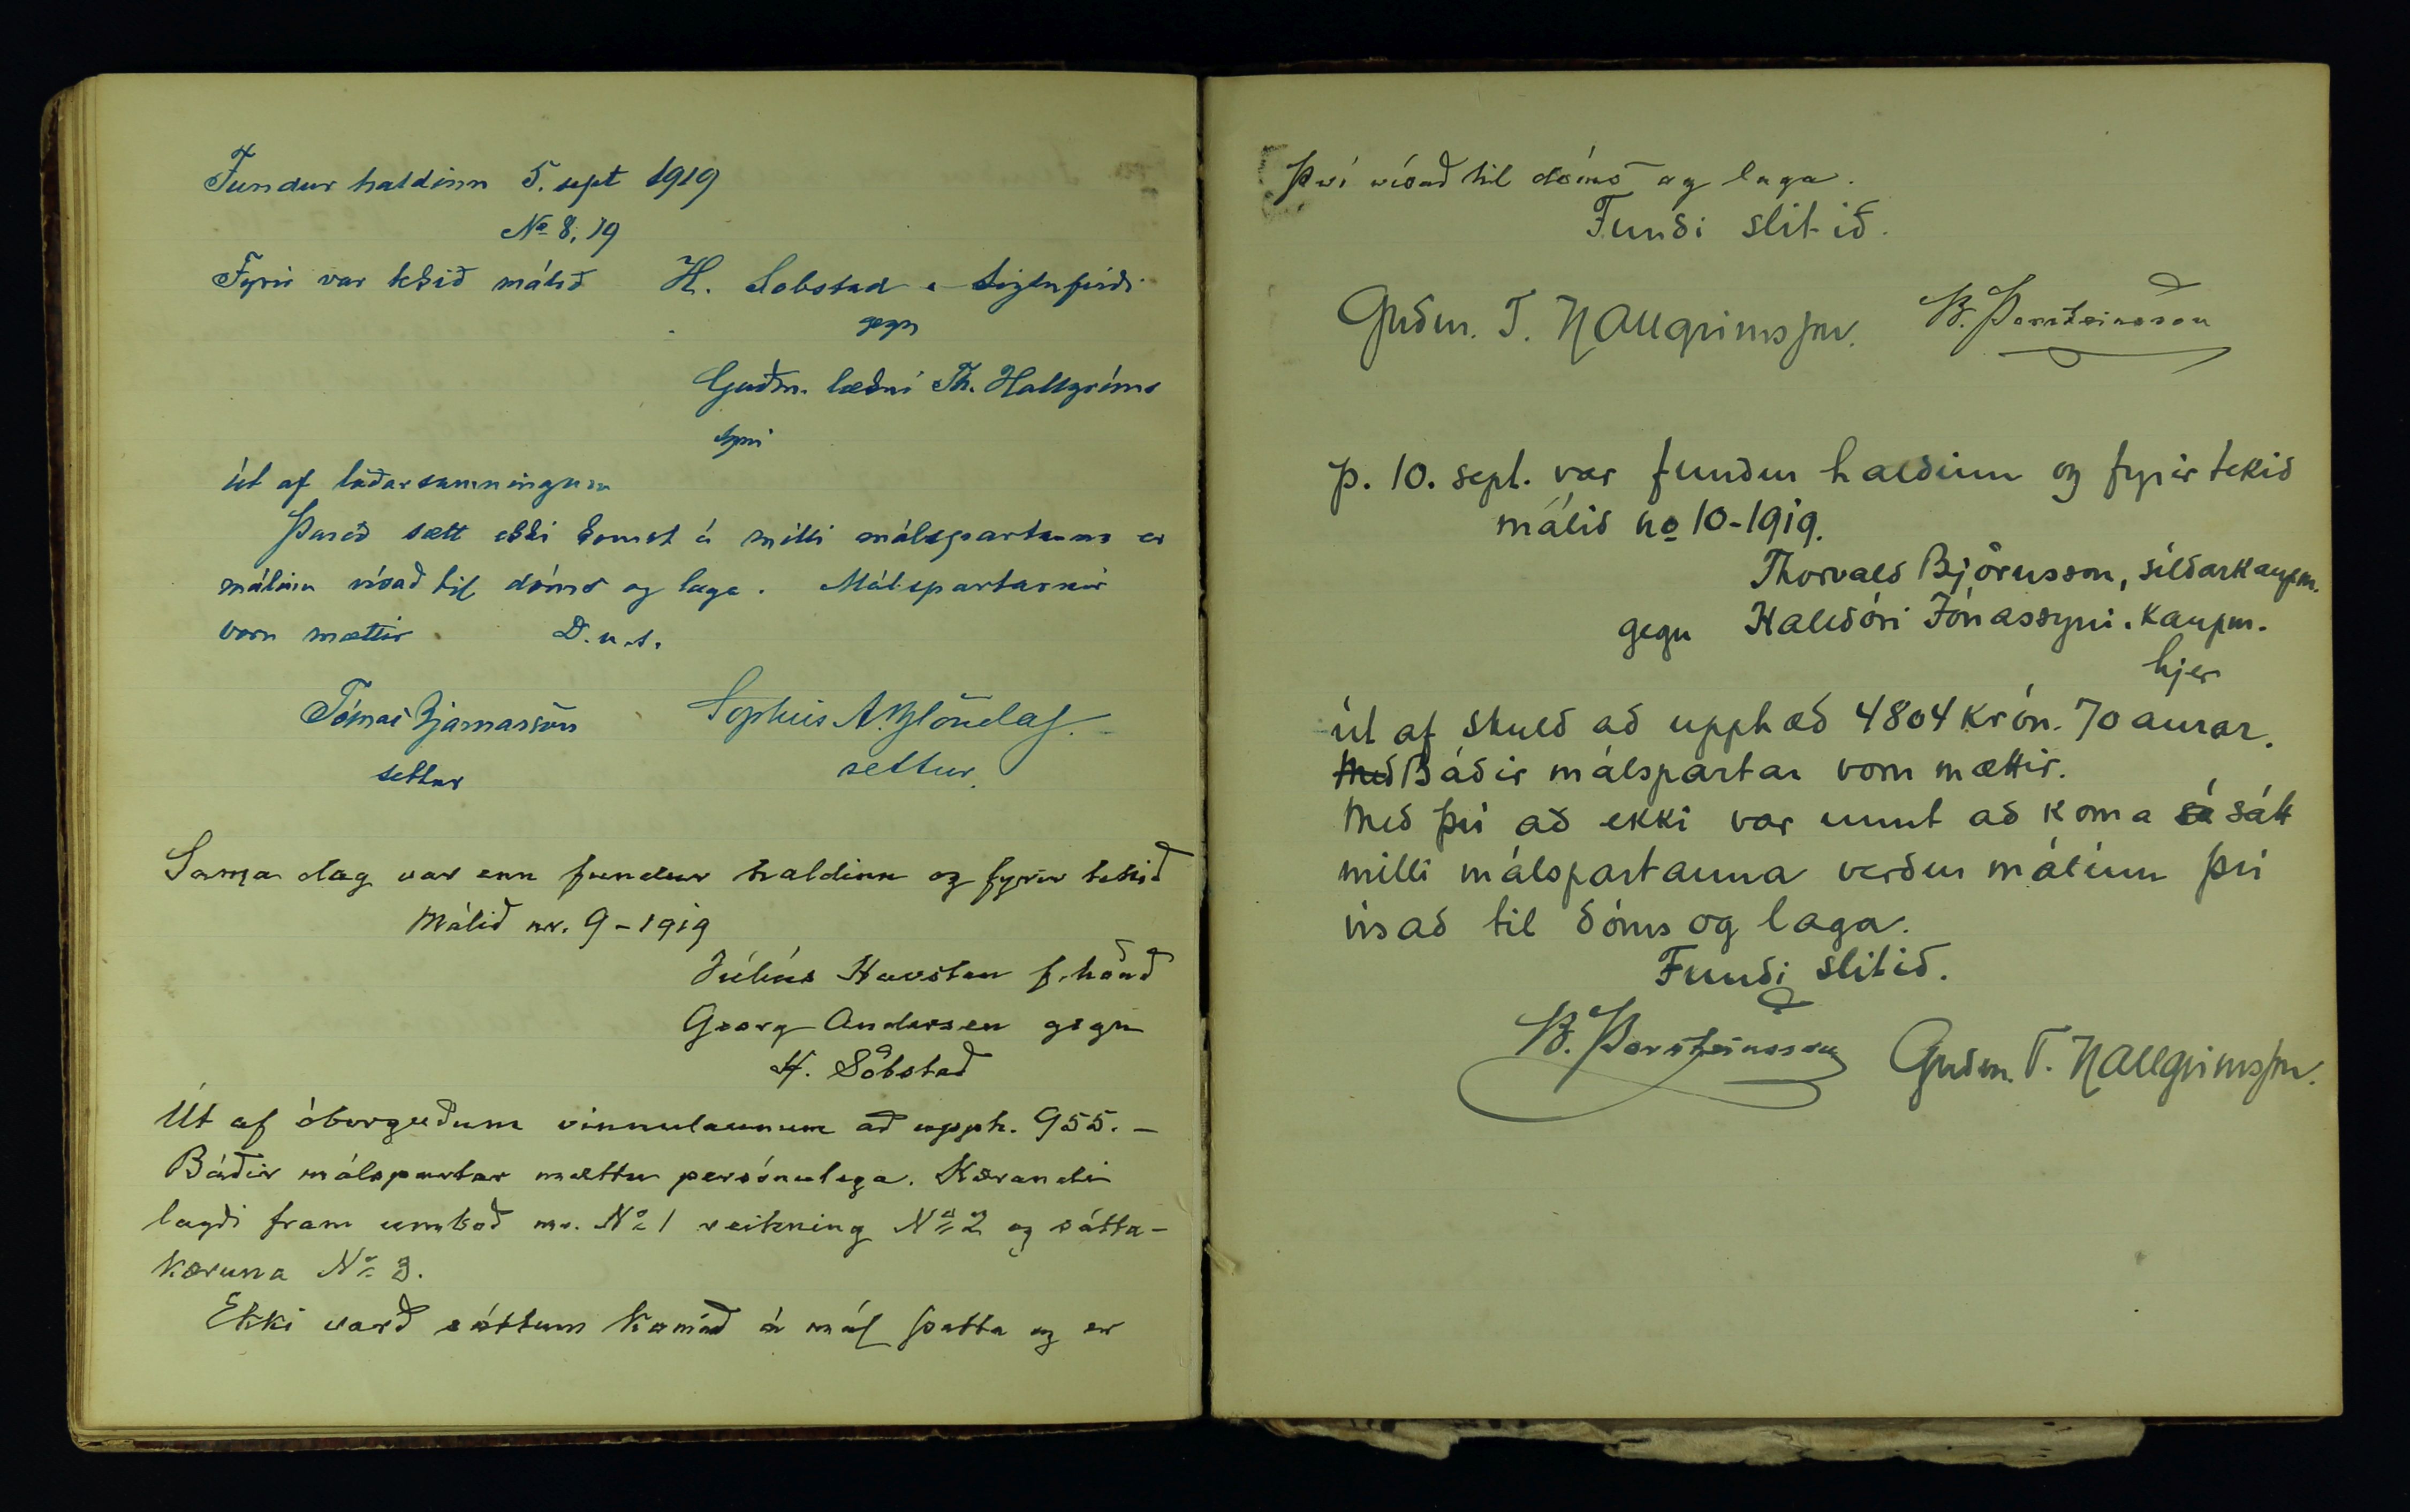 Fundur haldinn 5. sept 1919
No 8, 19
Fyrir var tekið málið H. Sobstad á Siglufirði
gegn
Guðm. lækni Th. Hallgríms
syni
út af lóðarsamningum
Þareð sætt ekki komst á milli málspartanna er
málinu vísað til dóms og laga. Málspartarnir
voru mættir. D.u.s.
Tómas Bjarnason Sophus A. Blöndal.
settur settur.
Sama dag var enn fundur haldinn og fyrir tekið
Málið nr. 9-1919
Júlíus Havsteen f. hönd
Georg Andersen gegn
H. Söbstað
Út af óborguðum vinnulaunum að upph. 955.-
Báðir málspartar mættu persónulega. Kærandi
lagði fram umboð nr. No 1 reikning No 2 og sátta-
kæruna No 3.
Ekki varð sáttum komið á mál þetta og er
Því vísað til dóms og laga.
Fundi slitið.
Guðm. T. Hallgrimsson. B. Þorsteinsson
Þ. 10. sept. var fundur haldinn og fyrir tekið
málið no 10-1919.
Thorvald Björnsson, síldarkaupm.
gegn Halldóri Jónassyni. kaupm.
hjer
út af skuld að upphæð 4804 krón. 70 aurar.
Með Báðir málspartar voru mættir.
Með því að ekki var unnt að koma sá sátt
milli málspartanna verður málinu því
vísað til dóms og laga.
Fundi slitið.
B. Þorsteinsson Guðm. T. Hallgrimsson.